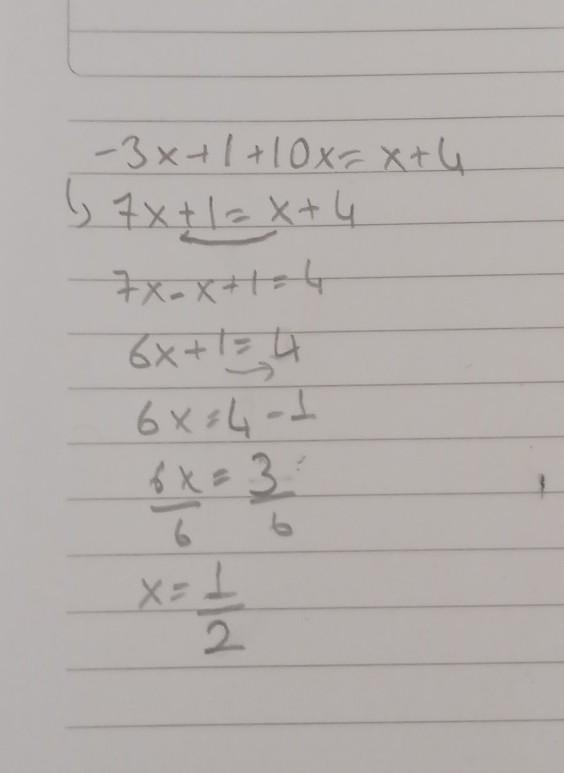 -3x+1+10x= x+4
↳ 7x+1= x+4
7x-x+1=4
6x+1=4
6x=4-1
6x/6=3/6
x=1/2